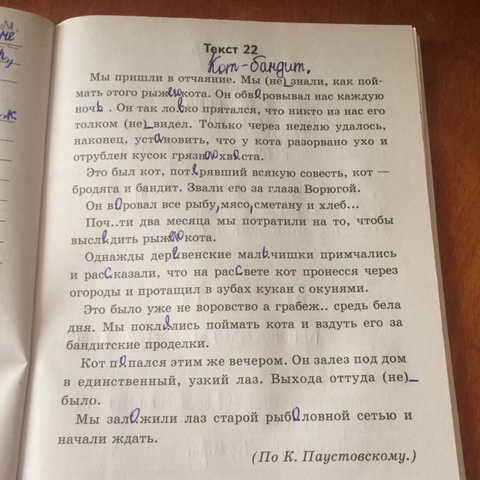 Текст 22
Кот-бандит.
Мы пришли в отчаяние. Мы (не)_знали, как пой-
мать этого рыжего кота. Он обворовывал нас каждую
ночь. Он так ловко прятался, что никто из нас его
толком (не)_видел. Только через неделю удалось,
наконец, установить, что у кота разорвано ухо и
отрублен кусок грязного хвоста.
Это был кот, потерявший всякую совесть, кот —
бродяга и бандит. Звали его за глаза Ворюгой.
Он воровал все рыбу, мясо, сметану и хлеб...
Поч..ти два месяца мы потратили на то, чтобы
выследить рыжего кота.
Однажды деревенские мальчишки примчались
и рассказали, что на рассвете кот пронесся через
огороды и протащил в зубах кукан с окунями.
Это было уже не воровство а грабеж.. средь бела
дня. Мы поклялись поймать кота и вздуть его за
бандитские проделки.
Кот попался этим же вечером. Он залез под дом
в единственный, узкий лаз. Выхода оттуда (не)_
было.
Мы заложили лаз старой рыболовной сетью и
начали ждать.
(По К. Паустовскому.)